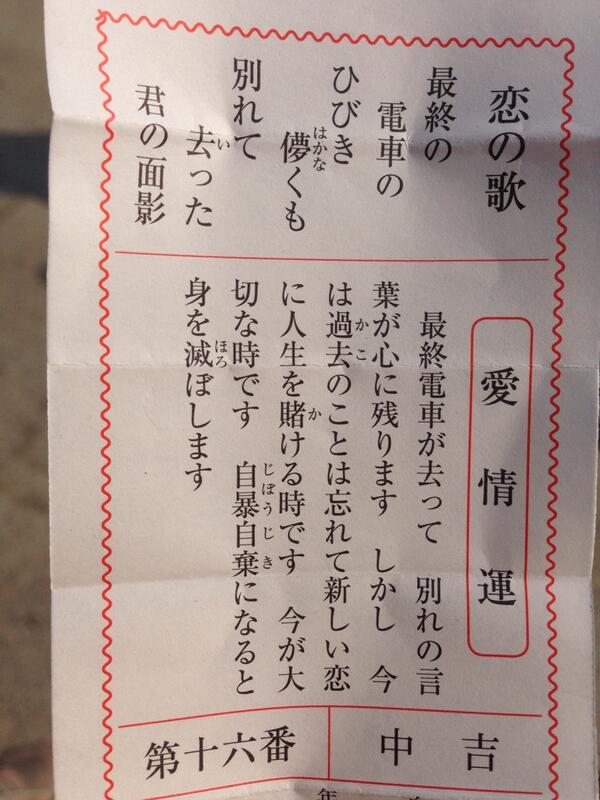 恋の歌
最終の
電車の
ひびき
儚くも
はかな
別れて
去った
い
君の面影
愛情運
最終電車が去って 別れの言
葉が心に残ります しかし 今
は過去のことは忘れて新しい恋
かこ
に人生を賭ける時です 今が大
か
切な時です 自暴自棄になると
じぼうじき
身を滅ぼします
ほろ
中吉
第十六番